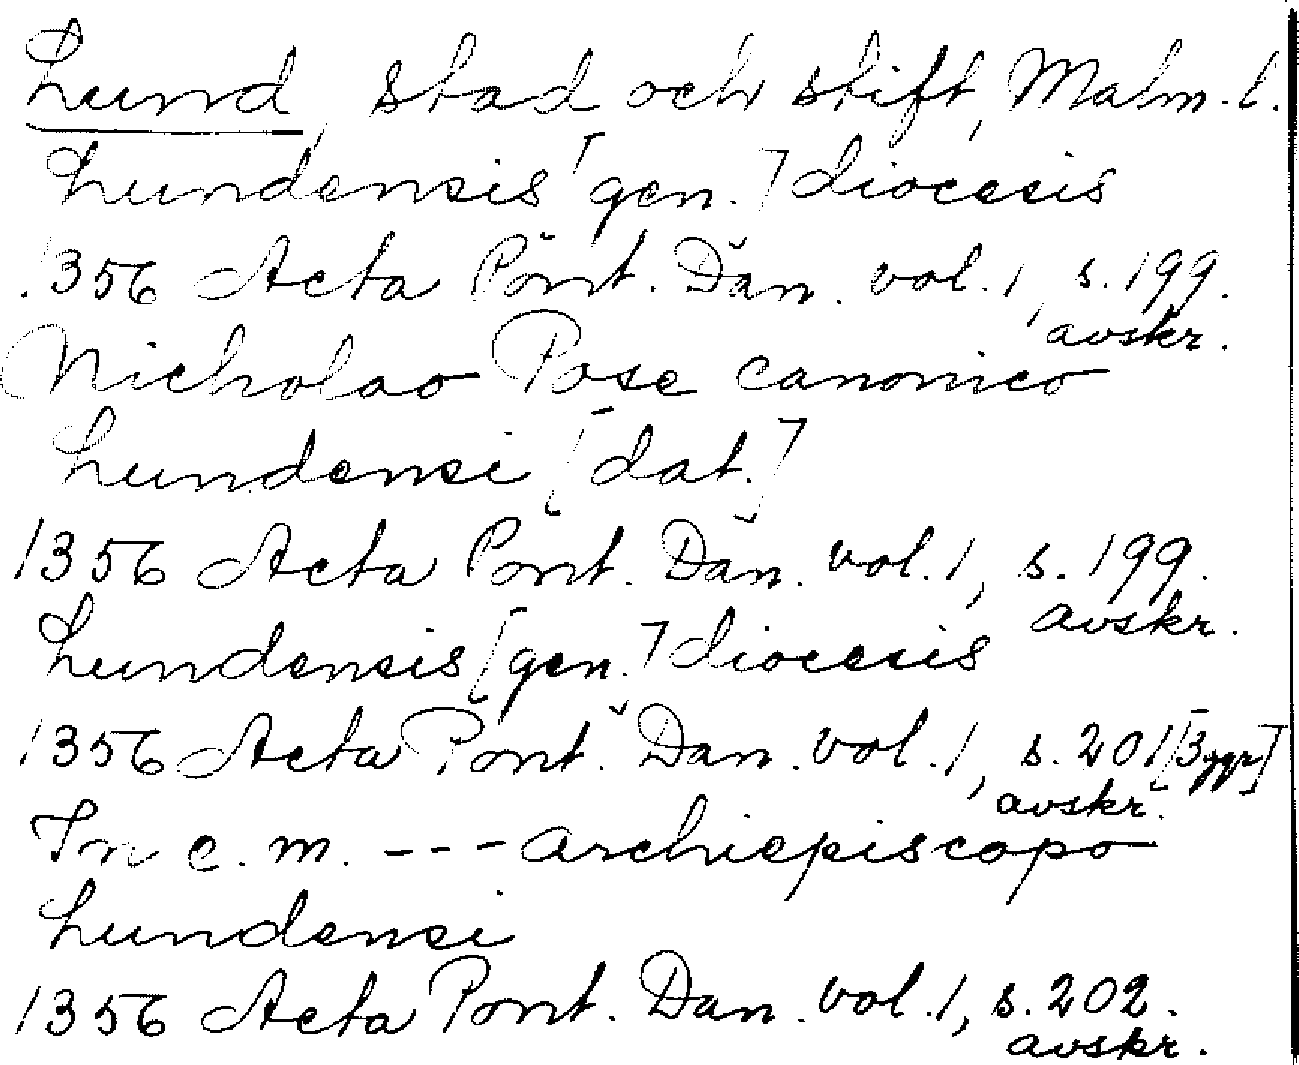 Lund, stad och stift, Malm. l.
Lundensis [gen.] diocesis
1356 Acta Pont. Dan. vol. 1, s. 199.
avskr.
Nicholao Pose canonico
Lundensi [dat.]
1356 Acta Pont. Dan. vol. 1, s. 199.
avskr.
Lundensis [gen.] diocesis
1356 Acta Pont. Dan. vol. 1, s. 201 [3 ggr]
avskr.
In e. m. --- archiepiscopo
Lundensi
1356 Acta Pont. Dan. vol. 1, s. 202.
avskr.